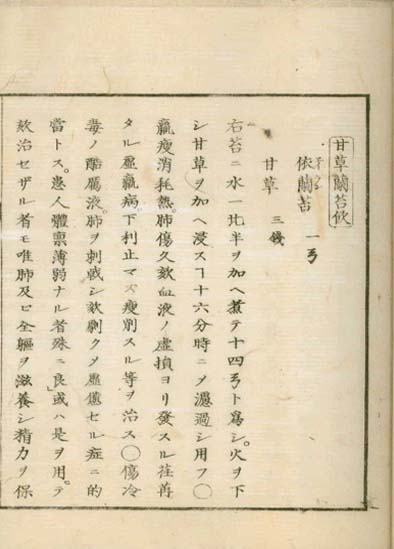 甘草蘭苔飲
依蘭苔 一ᄝ
甘草 三錢
右苔ニ水一比半ヲ加ヘ煮テ十四ᄝト爲シ。火ヲ下
シ甘草ヲ加ヘ浸スヿ十六分時ニ〆濾過シ用フ〇
羸瘦消耗熱。肺傷久欬血液ノ虛損ヨリ發スル荏苒
タル虛羸病。下利止マズ瘦削スル等ヲ治ス〇傷冷
毒ノ酷厲液。肺ヲ刺戟シ欬劇クメ虛憊セル症ニ的
當トス。患人體禀薄弱ナル者殊ニ良。或ハ是ヲ用。テ
欬治セザル者モ唯肺及ヒ全軀ヲ滋養シ精力ヲ保